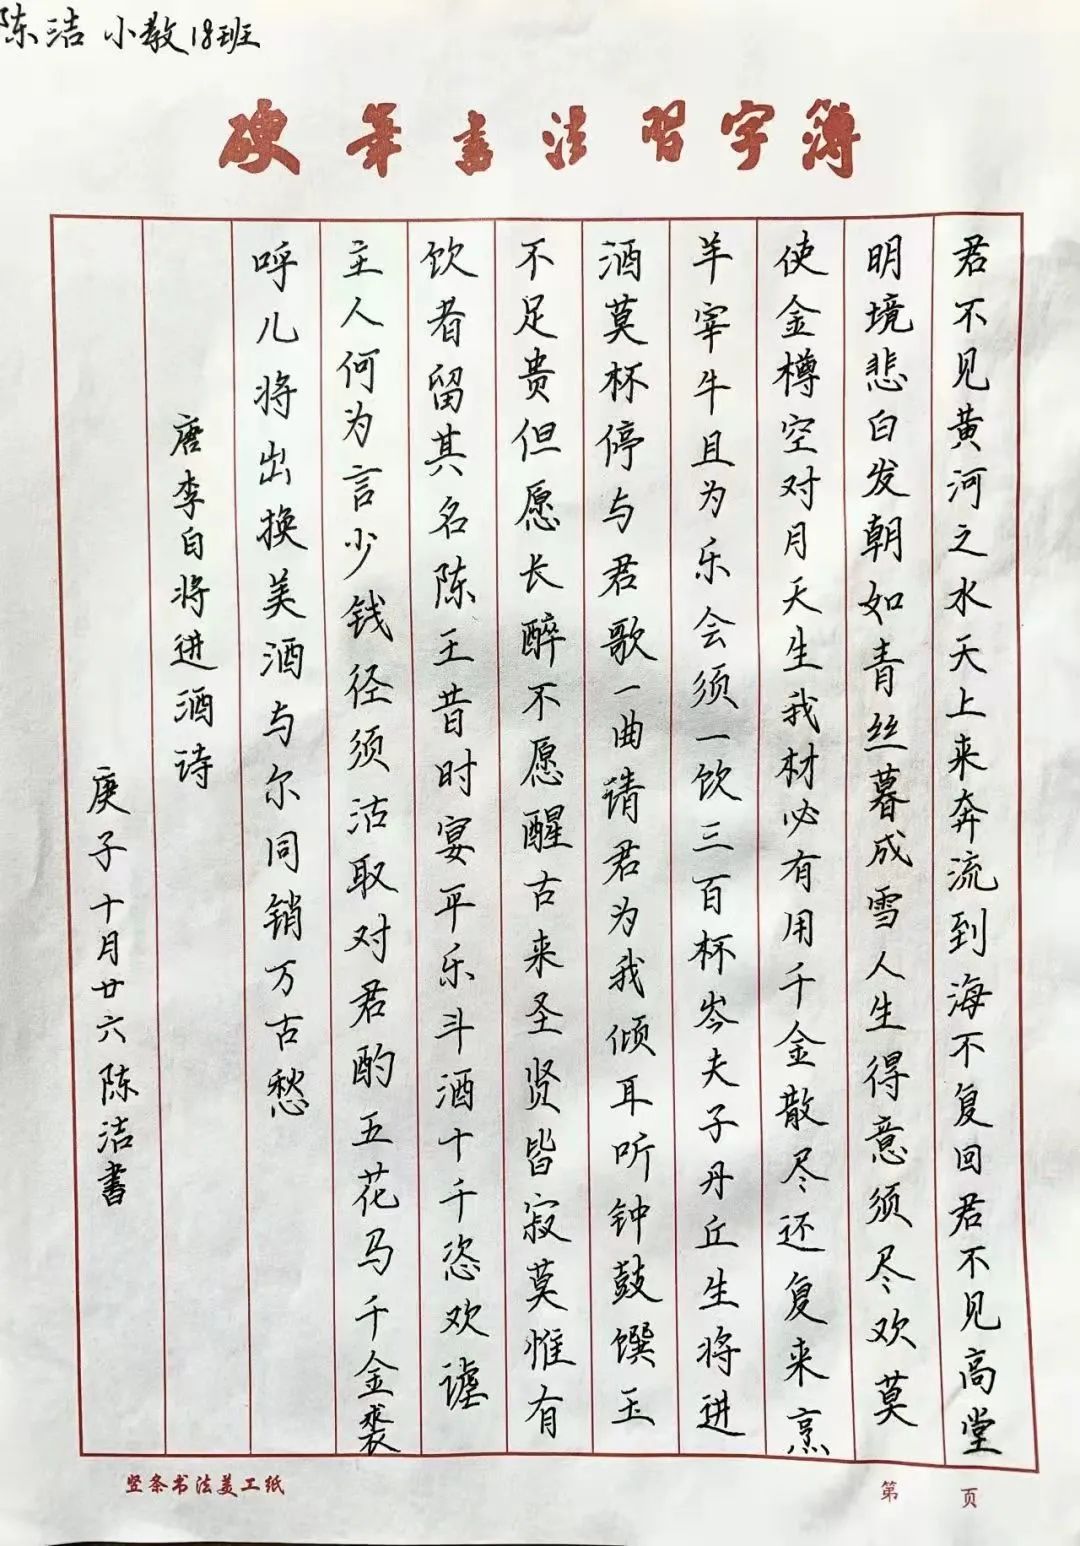 陈洁 小教18班
硬笔书法習字簿
君不见黄河之水天上来奔流到海不复回君不见高堂
明境悲白发朝如青丝暮成雪人生得意须尽欢莫
使金樽空对月天生我材必有用千金散尽还复来烹
羊宰牛且为乐会须一饮三百杯岑夫子丹丘生将进
酒莫杯停与君歌一曲请君为我倾耳听钟鼓馔玉
不足贵但愿长醉不愿醒古来圣贤皆寂莫惟有
饮者留其名陈王昔时宴平乐斗酒十千恣欢谑
主人何为言少钱径须沽取对君酌五花马千金裘
呼儿将出换美酒与尔同销万古愁
唐李白将进酒诗
庚子十月廿六陈洁書
竖条书法美工纸
第 页